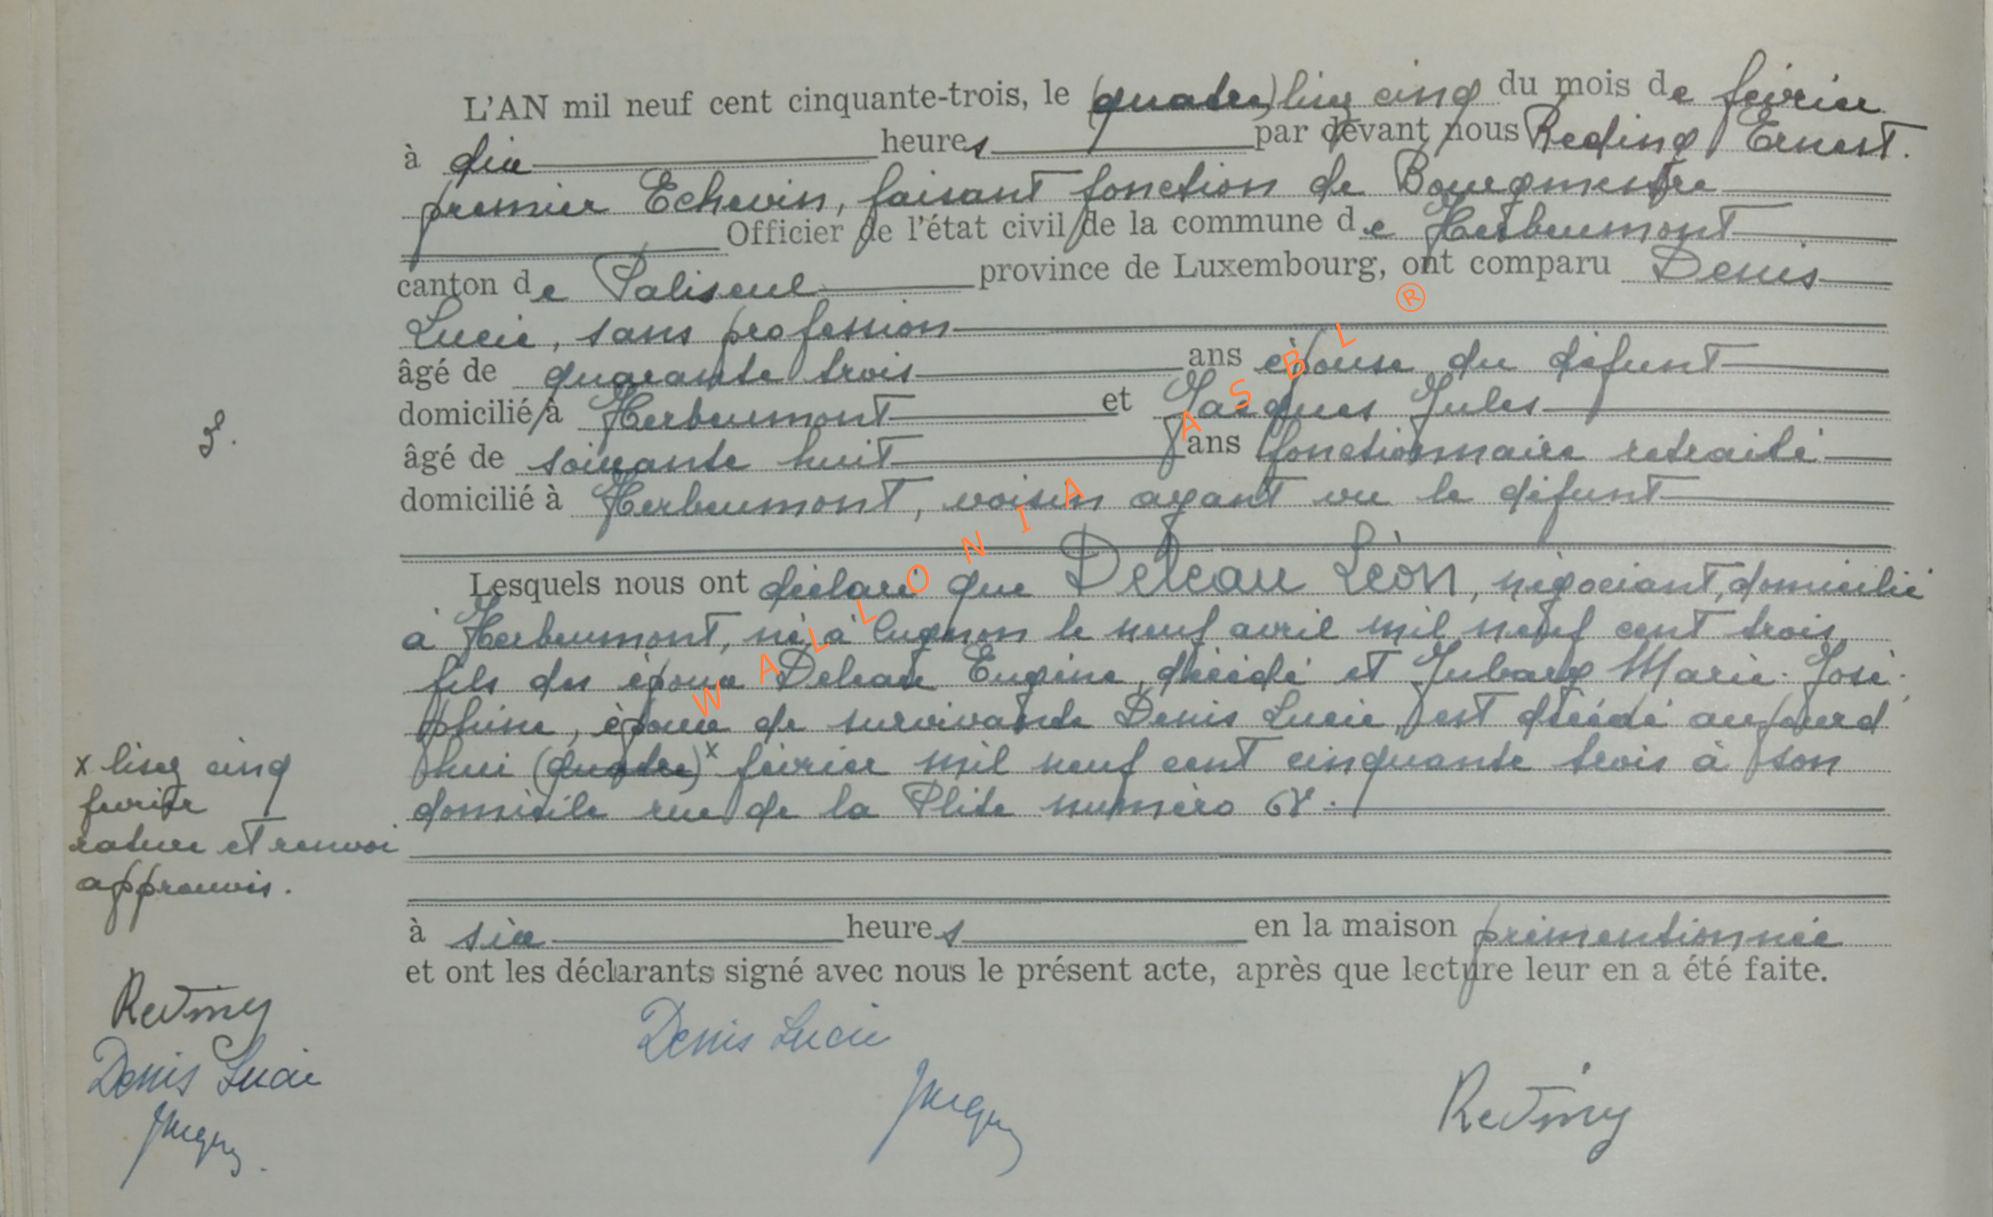 L'AN mil neuf cent cinquante-trois, le (quatre) lisez cinq du mois de février
à dix heures par devant nous Reding Ernest.
premier Echevin, faisant fonction de Bourgmestre
Officier de l'état civil de la commune de Herbeumont
canton de Paliseul province de Luxembourg, ont comparu Denis
Lucie, sans profession
âgé de quarante trois ans épouse du défunt
domicilié à Herbeumont et Jacques Jules
âgé de soixante huit ans fonctionnaire retraité
domicilié à Herbeumont, voisin ayant vu le défunt
Lesquels nous ont déclaré que Deleau Léon, négociant, domicilié
à Herbeumont, né à Cugnon le neuf avril mil neuf cent trois,
fils des époux Deleau Eugène, décédé et Marie-José-
phine, époux de survivante Denis Lucie, est décédé aujourd
hui (quatre)x février mil neuf cent cinquante trois à son
domicile rue de la numéro
à six heures en la maison prémentionnée
et ont les déclarants signé avec nous le présent acte, après que lecture leur en a été faite.
x lisez cinq
février
rature et renvoi
approuvés.
Reding
Denis Lucie
Jacques
Denis Lucie
Jacques
Reding
WALLONIA ASBL ®